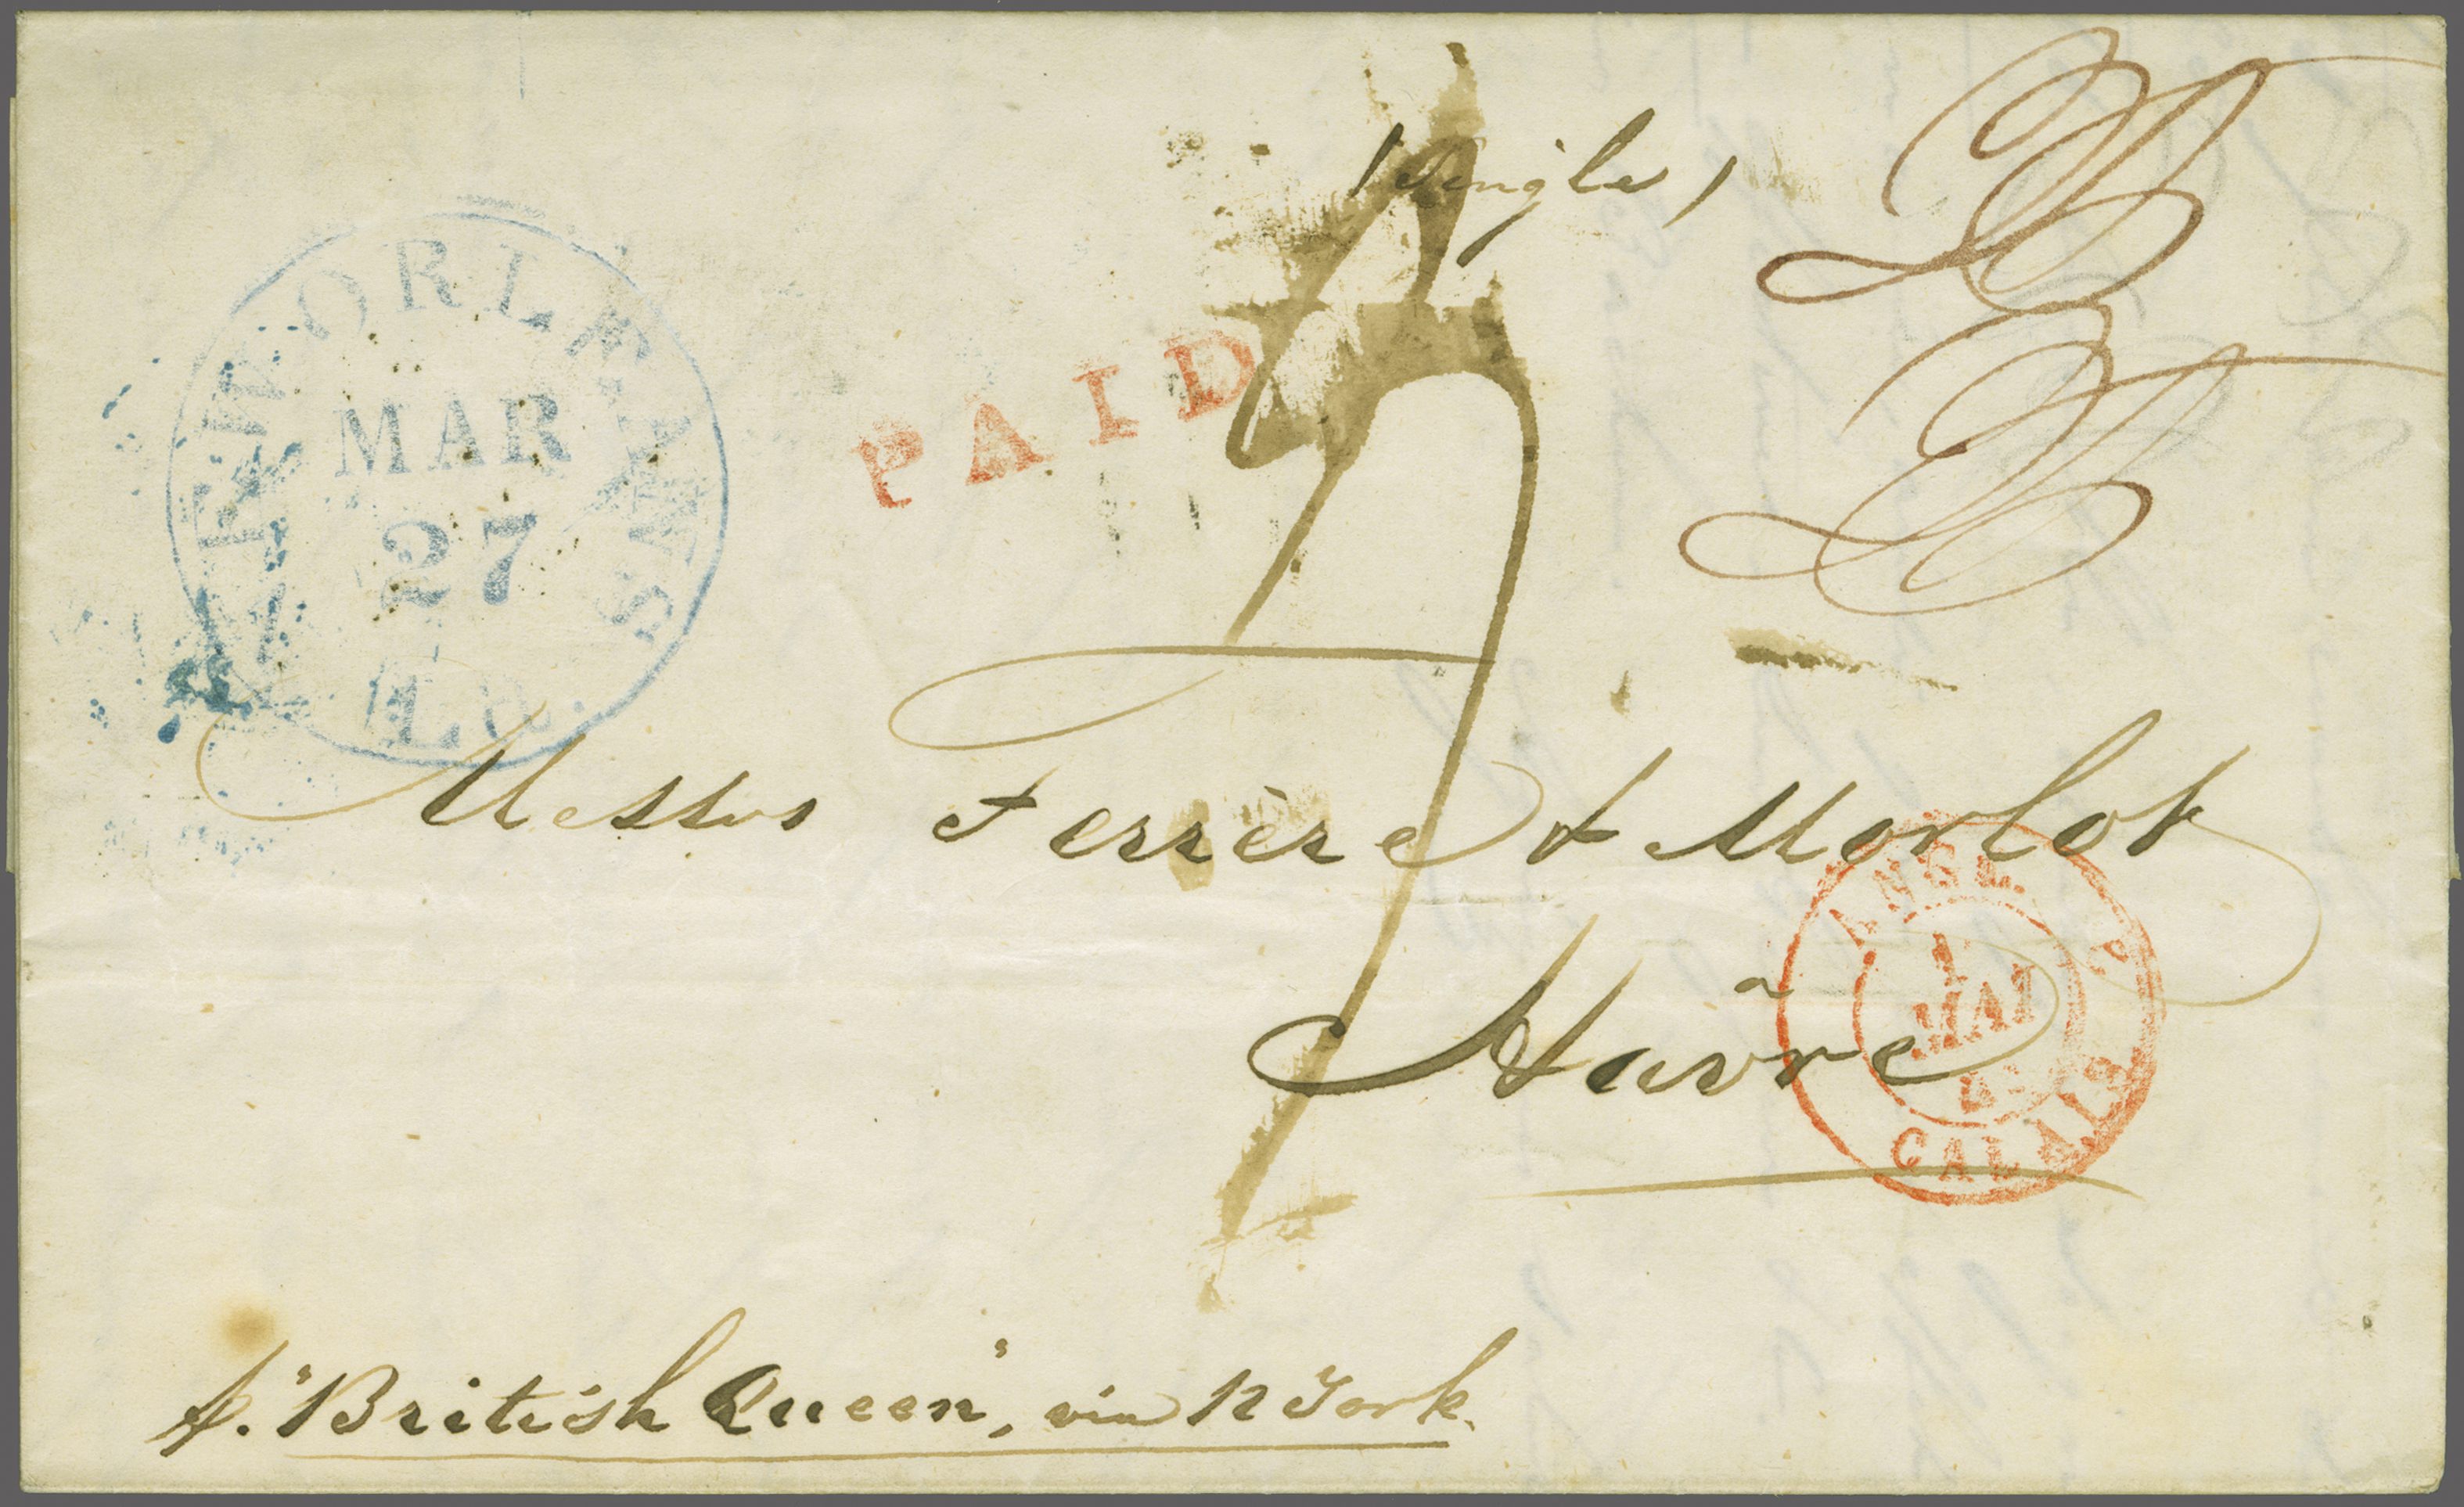 (Single)
NEW ORLEANS
MAR
27
La.
PAID
Messrs Ferrère & Morlot
Havre
ANGL.
1
MAI
CALAIS
p. "British Queen", via N York.